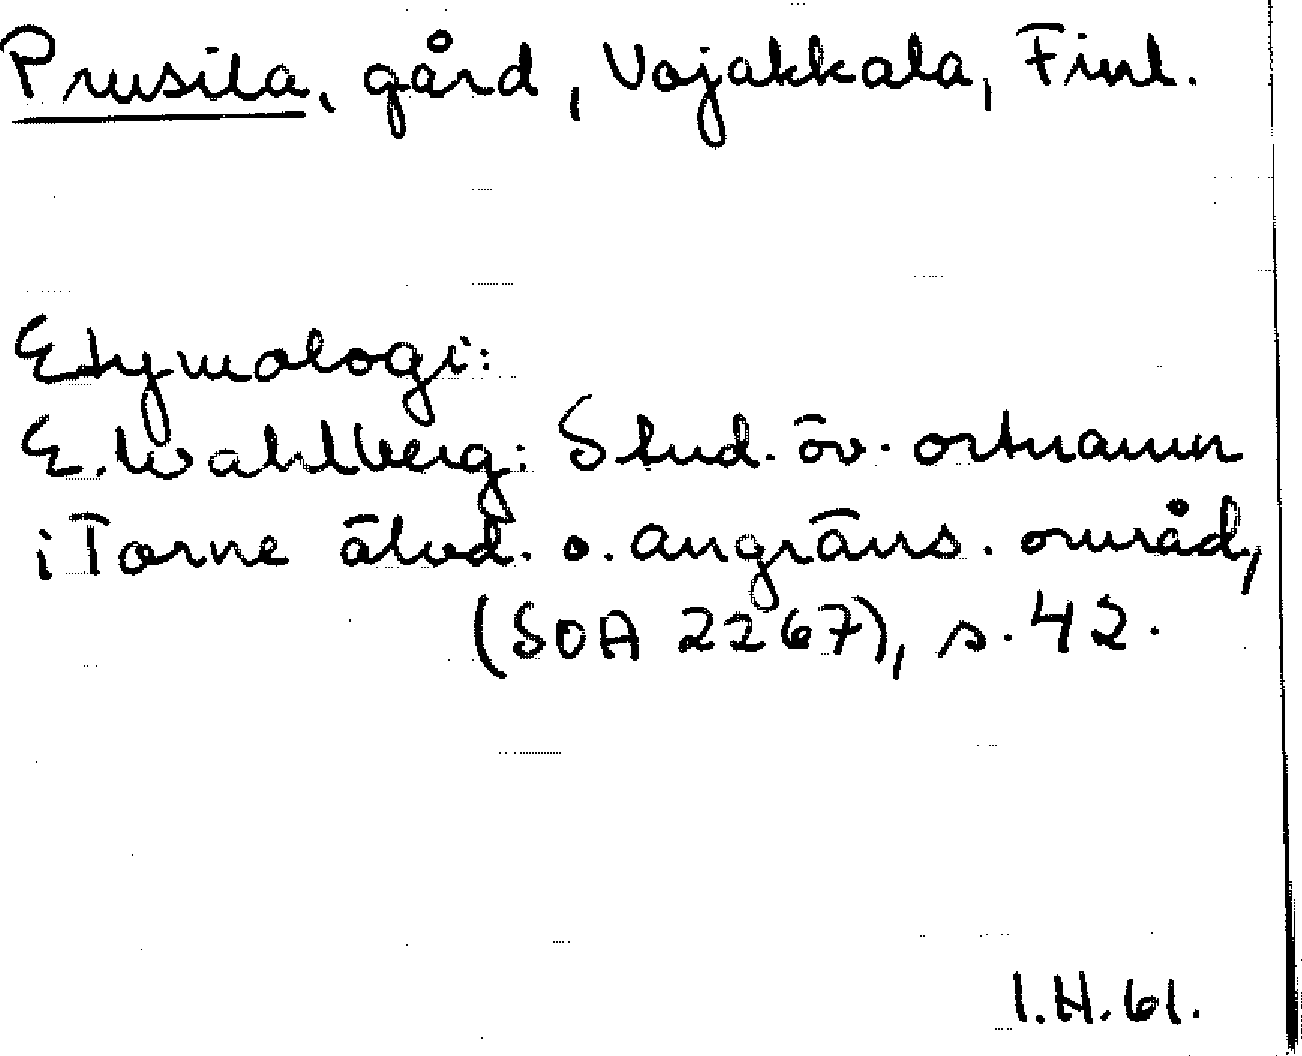 Prusila, gård, Vojakkala, Finl.
Etymologi:
E. Wahlberg: Stud. öv. ortnamn
i Torne älvd. o. angräns. områd.,
(SOA 2267), s. 42.
I.H. 61.